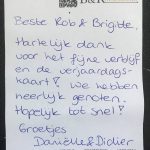 B&R
Beste Rob & Brigitte,
Hartelijk dank
voor het fijne verblijf
en de verjaardags-
kaart! We hebben
heerlijk genoten.
Hopelijk tot snel!
Groetjes
Daniëlle & Didier